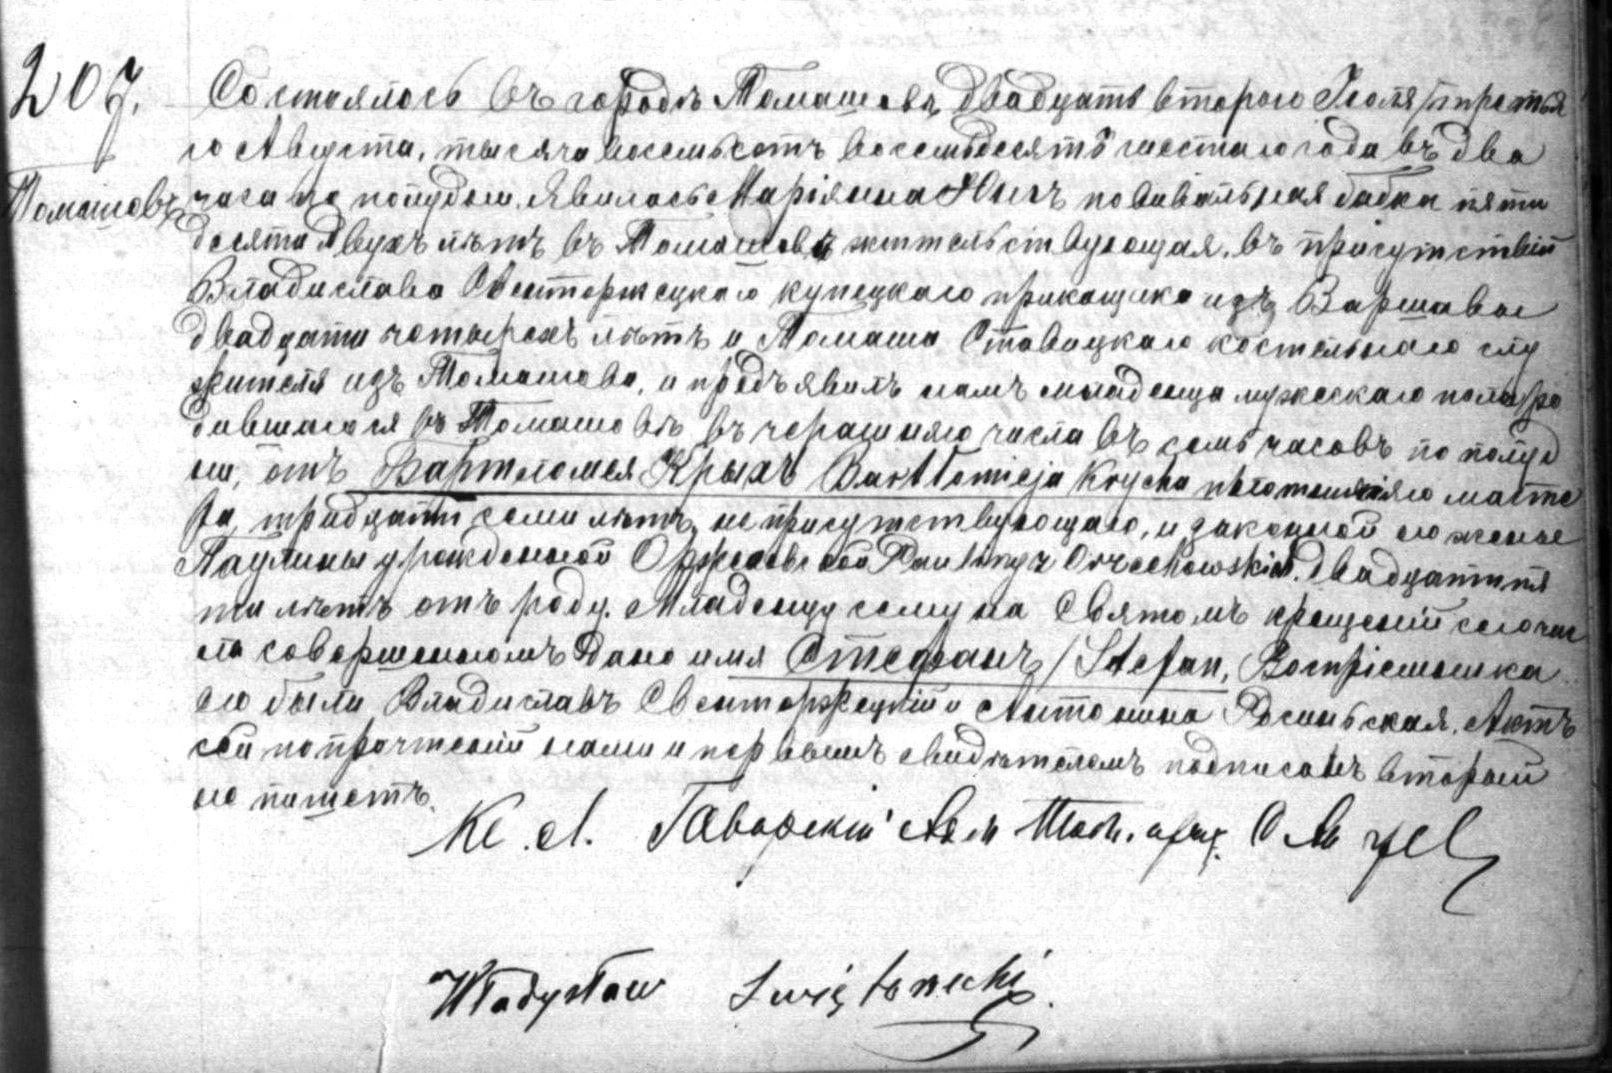 207.
Томашовъ
Состоялось въ городѣ Томашовѣ двадцать второго Іюля/третья
го Августа, тысяча восемьсотъ восемьдесятъ шестаго года въ два
часа по полудни. Явилась Маріянна Юнгъ повивальная бабка пяти
десяти двухъ лѣтъ въ Томашовѣ жительствующая, въ присутствіи
Владислава Свенторжецкаго купецкаго прикащика изъ Варшавы
двадцати четырехъ лѣтъ и Томаша Ставицкаго костельнаго слу
жителя изъ Томашова, и предъявила намъ младенца мужескаго пола, ро
дившагося въ Томашовѣ вчерашняго числа въ семь часовъ по полуд
ни, отъ Бартломея Крыхъ Bartłomieja Krycha мастэ
ра, тридцати семи лѣтъ, не присутствующаго, и законной его жены
Паулины урожденной Оржеховской Pauliny z Orzechowskich, двадцати пя
ти лѣтъ отъ роду. Младенцу сему на Святомъ крещеніи сего чис
ла совершенномъ дано имя Стефанъ/Stefan, Воспріемника
его были Владиславъ Свенторжецкій и Антонина Росинская. Актъ
сей по прочтеніи нами и первымъ свидѣтелемъ подписанъ второй
не пишетъ.
Кс. А. Гаворскій Адм Том.
Władysław Święto<br>rzecki